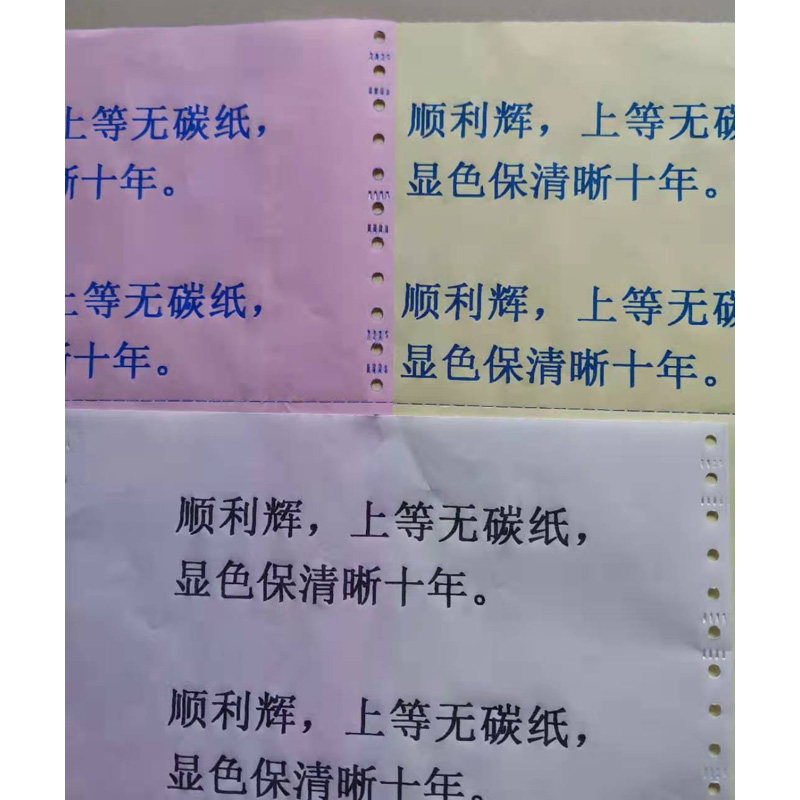 上等无碳纸，
晰十年。
上等无碳纸，
十年。
顺利辉，上等无碳
显色保清晰十年。
顺利辉，上等无碳
显色保清晰十年。
顺利辉，上等无碳纸，
显色保清晰十年。
顺利辉，上等无碳纸，
显色保清晰十年。